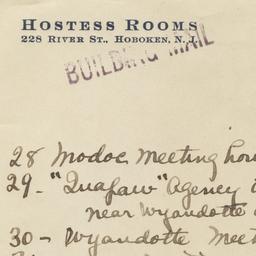 HOSTESS ROOMS
228 RIVER ST., HOBOKEN, N. J.
BUILDING MAIL
28 Modoc Meeting hou
29 - "Quapaw" Agency
near Wyandotte
30 - Wyandotte Meet